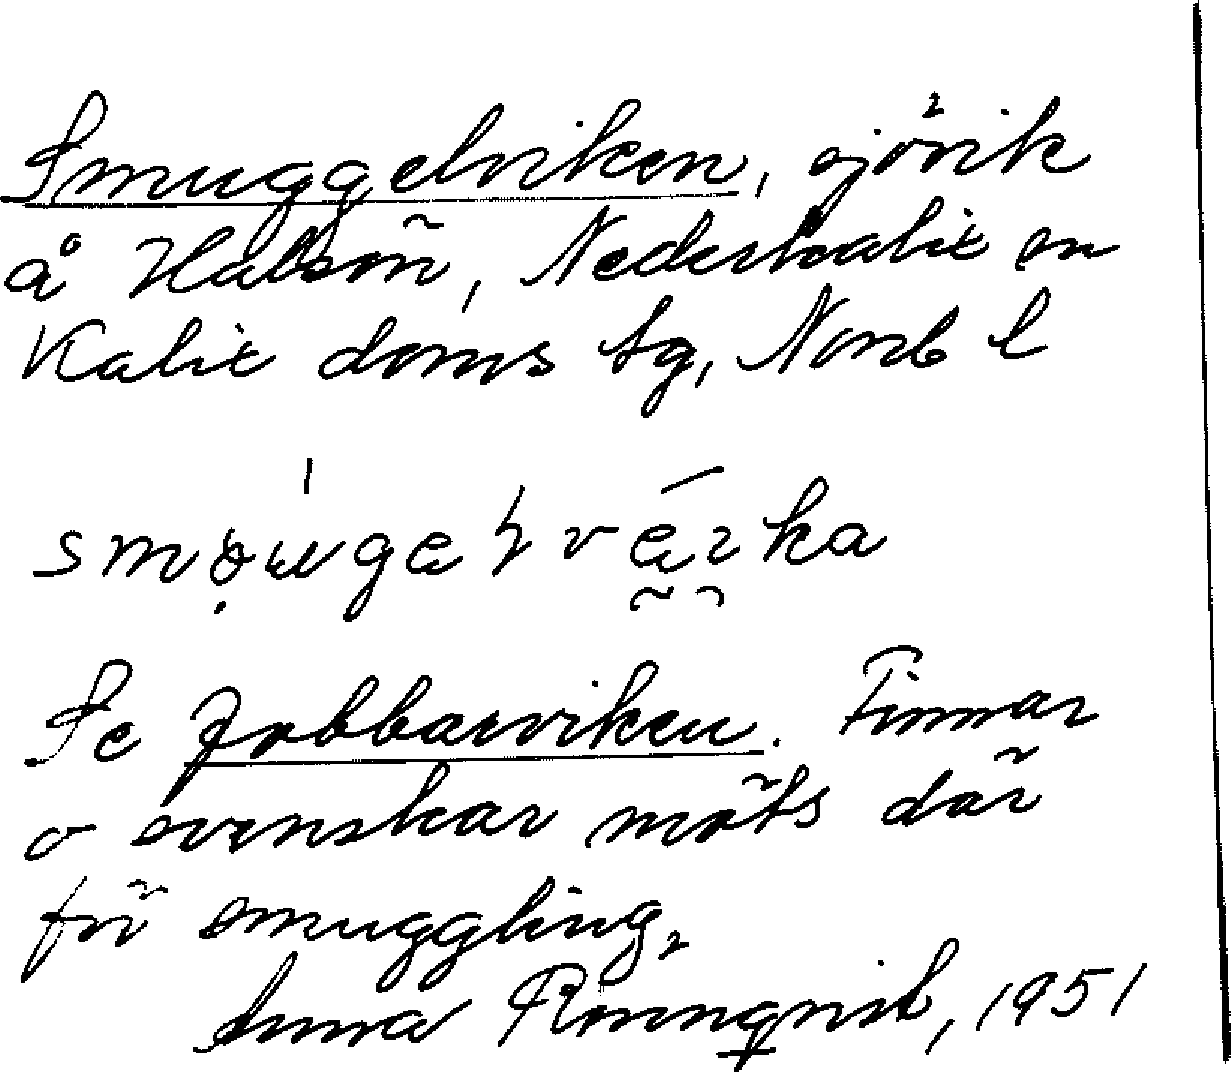 Smuggelviken, sjövik
å Halsön, Nederkalix sn
Kalix doms tg, Norrb l
Se Jobbarviken. Finnar
o svenskar möts där
för smuggling.
Anna Rönnqvist, 1951